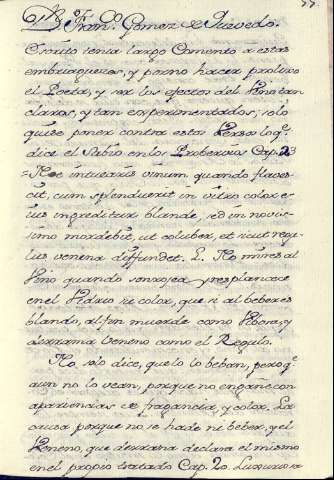 77.
D.ⁿ Fran.ᶜᵒ Gomez de Quevedo.
Escrito tenia largo Comento a estas
embriagueces, y por no hacer prolixo
el Poeta, y ser los efectos del Vino tan
claros, y tan experimentados; solo
quise poner contra estos Versos lo q.ᵉ
dice el Sabio en los Proberbios Cap. 23
= Ne intuearis vinum, quando flaves-
cit, cum splenduerit in vitro color e-
ius ingreditur blande, sed in novis-
simo mordebit, ut coluber, et sicut regu-
lus venena diffundet. No mires al
Vino quando se enrojea, y resplandece
en el Vidrio su color, que si al beber es
blando, al fin muerde como Vibora, y
derrama Veneno como el Regulo.
No solo dice, que lo lo beban, pero q.ᵉ
aun no lo vean, porque no engañe con
apariencias de fragancia, y color. La
causa porque no se hade ni beber, y el
Veneno, que derrama declara el mismo
en el propio tratado Cap. 20. Luxuriosa